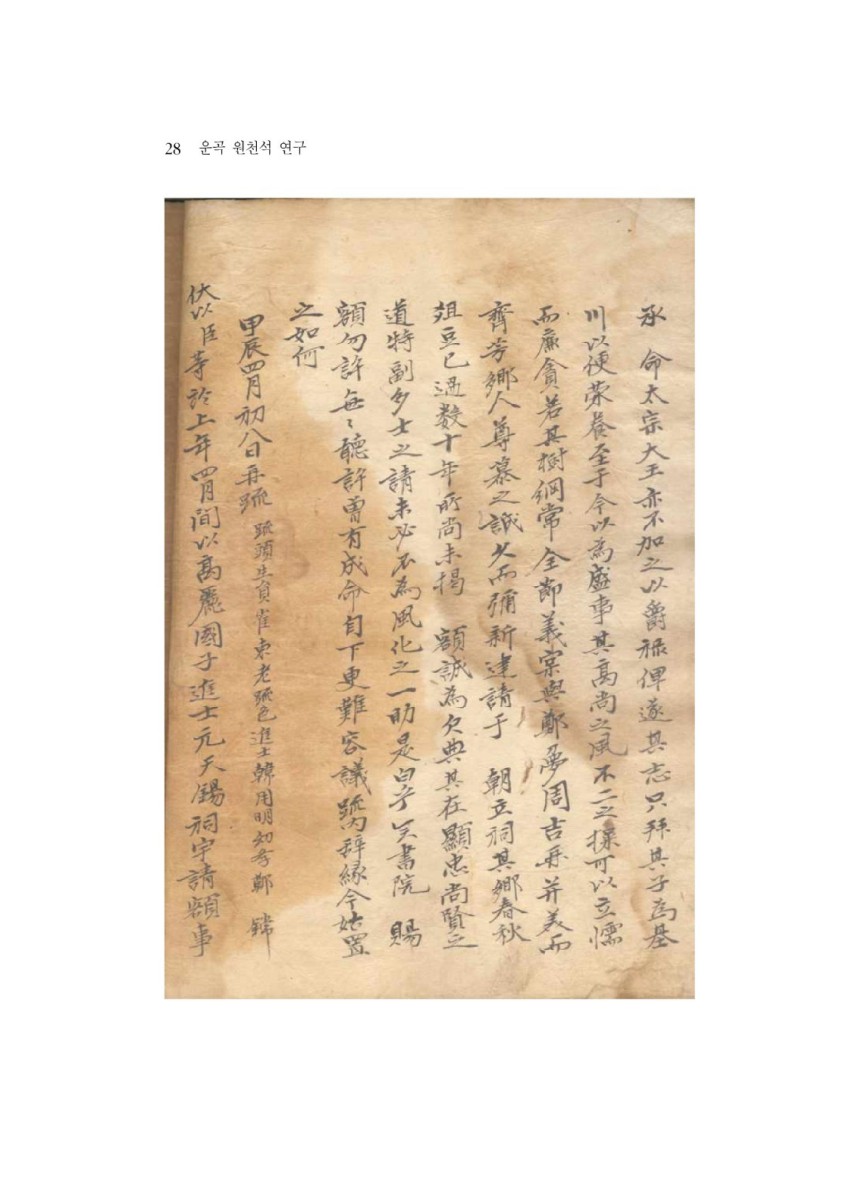 28 운곡 원천석 연구
承 命太宗大王亦不加之以爵祿俾遂其志只拜其子爲基
川以便荣養至于今以為盛事其高尚之風不二之操可以立懦
而廉貪若其樹綱常全節義宲與鄭夢周吉再并美而
齊芳鄉人尊慕之誠久而彌新建請于 朝立祠其鄉春秋
俎豆已過数十年所尚未揭 額誠為欠典其在顯忠尚賢之
道特副多士之請未必不為風化之一助是白乎矣書院 賜
額勿許每〻聽許曾有成命自下更難容議疏內辞緣今姑置
之如何
甲辰四月初八日再疏 疏頭生員崔東老疏色進士韓用明幼學鄭
伏以臣等於上年四月間以高麗國子進士元天錫祠宇請額事